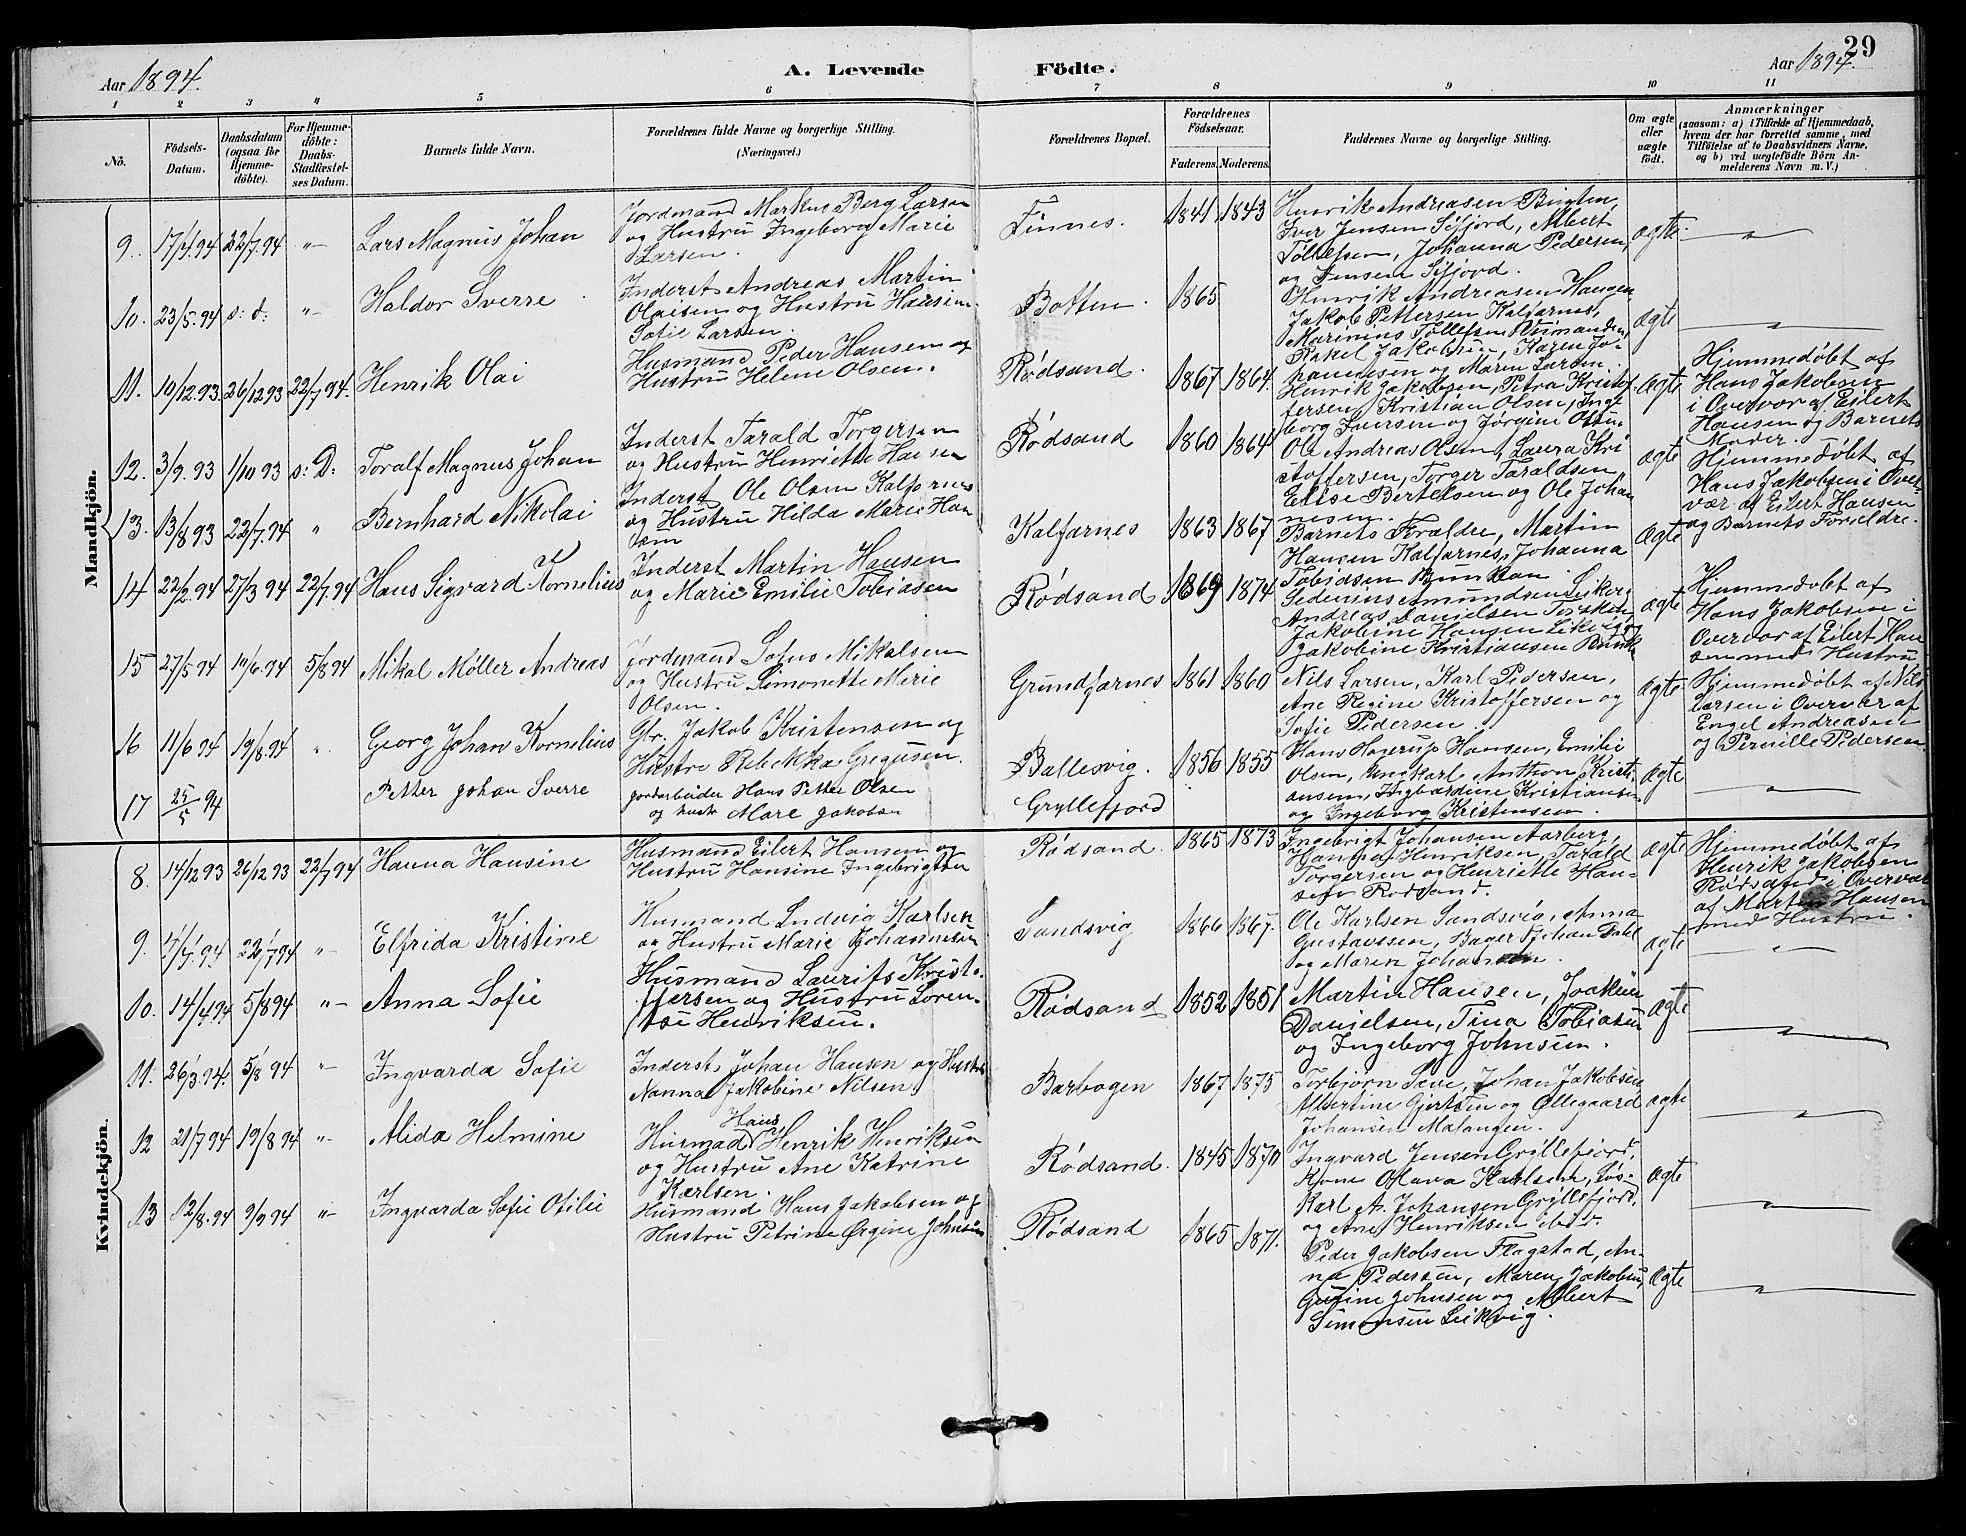 29
Aar 1894.
A. Levende Födte.
Aar 1894.
1 2 3 4 5 6 7 8 9 10 11
No.
Födsels-
Datum.
Daabsdatum
(ogsaa for
Hjemme-
döbte).
For Hjemme-
döbte:
Daabs-
Stadfæstel-
ses Datum.
Barnets fulde Navn.
Forældrenes fulde Navne og borgerlige Stilling.
(Næringsvei.)
Forældrenes Bopæl.
Forældrenes
Födselsaar.
Faderens. Moderens.
Faddernes Navne og borgerlige Stilling.
Om ægte
eller
uægte
födt.
Anmærkninger
(saasom: a) i Tilfælde af Hjemmedaab,
hvem der har forrettet samme, med
Tilföielse af to Daabsvidners Navne,
og b) ved uægtefödte Börn An-
melderens Navn m. V.)
Mandkjön.
9. 17/4 94 22/7. 94 "- Lars Magnus Johan
Jordmand Markus Berg Larsen
og Hustru Ingeborg Marie
Larsen.
Finnes. 1841 1843
Henrik Andreasen
Iver Jensen Sifjord, Albert
Tollefsen, Johanna Pedersen,
og Jensen Sifjord.
ægte.
10. 23/5. 94 s: d. "- Haldor Sverre
Inderst Andreas Martin
Olaisen og Hustru Hansine
Sofie Larsen.
Botten. 1865
Henrik Andreasen Haugen,
Jakob Pettersen Kalfarnes,
Marinius Tollefsen
Rakel Jakobsen, Karen Jo-
hannesen og Maren Larsen.
ægte
11. 10/12 93 26/12 93 22/7 94. Henrik Olai
Husmand Peder Hansen og
Hustru Helene Olsen.
Rødsand. 1867 1864.
Henrik Jakobsen, Petra Kristof-
fersen, Kristian Olsen, Inge
borg Iversen og Jørgine Olsen.
ægte
Hjemmedøbt af
Hans Jakobsen
i Overvær af Eilert
Hansen og Barnets
Moder.
12. 3/9. 93 1/10 93 s: D: Toralf Magnus Johan
Inderst Tarald Torgersen
og Hustru Henriette Hansen
Rødsand 1860 1864
Ole Andreas Olsen, Laura Kri
stoffersen, Torger Taraldsen,
Elise Bertelsen og Ole Johan
nesen.
ægte
Hjemmedøbt af
Hans Jakobsen i Over-
vær af Eilert Hansen
og Barnets Forældre.
13. 13/8 93 22/7. 94 " Bernhard Nikolai
Inderst Ole Olsen Kalfarnes
og Hustru Hilda Marie Han
sen
Kalfarnes 1863 1867
Barnets Forældre, Martin
Hansen Kalfarnes, Johanna
Tobiasen
ægte
14 22/2. 94 27/3 94 22/7. 94 Hans Sigvard Kornelius
Inderst Martin Hansen
og Marie Emilie Tobiasen
Rødsand 1869 1874
Sederius Amundsen
Andreas Danielsen Torsken
Jakobine Hansen Leikvig og
Jakobine Kristiansen
ægte
Hjemmedøbt af
Hans Jakobsen i
Overvær af Eilert Han
sen med Hustru
15 27/5 94 10/6. 94 5/8 94 Mikal Møller Andreas
Jordmand Sofus Mikalsen
og Hustru Simonette Marie
Olsen.
Grundfarnes 1861 1860
Nils Larsen, Karl Pedersen,
Ane Regine Kristoffersen og
Sofie Pedersen.
ægte
Hjemmedøbt af Nils
Larsen i Overvær af
Engel Andreasen
og Pernille Pedersen
16 11/6 94 19/8. 94 " Georg Johan Kornelius
Gbr. Jakob Kristensen og
Hustru Rebekka Gregusen.
Ballesvig. 1856 1855
Hans Hagerup Hansen, Emilie
Olsen, Ungkarl Anthon Kristi-
ansen, Ingbardine Kristiansen
og Ingeborg Kristensen.
ægte
17 25/5 94 Petter Johan Sverre
Jordarbeider Hans Petter Olsen
og hustr Mare Jakobsen
Gryllefjord
Kvindekjön.
8. 14/12 93 26/12 93 22/7 94 Hanna Hansine
Husmand Eilert Hansen og
Hustru Hansine Ingebrigtsen
Rødsand. 1865 1873
Ingebrigt Johansen Aarberg,
Hanna Henriksen, Tarald
Torgersen og Henriette Han-
sen Rødsand.
ægte
Hjemmedøbt af
Henrik Jakobsen
Rødsand i Overvær
af Martin Hansen
med Hustru.
9. 22/7 94 "- Elfrida Kristine
Husmand Ludvig Karlsen
og Hustru Marie Johannesen
Sandsvig 1866 1867.
Ole Karlsen Sandsvig, Anna
Gustavssen, Bager Johan Dahl
og Maren Johansen.
ægte
10. 14/4 94 5/8 94 "- Anna Sofie
Husmand Laurits Kristo-
ffersen og Hustru Loren-
tse Henriksen.
Rødsand 1852 1851
Martin Hansen, Joakim
Danielsen, Tina Tobiasen
og Ingeborg Johnsen.
ægte
11. 26/3 94. 5/8 94 "- Ingvarda Sofie
Inderst Johan Hansen og Hustru
Nanna Jakobine Nilsen
Barbogen 1867 1875
Torbjørn Sæve, Johan Jakobsen
Albertine Gjertsen og Ollegaard
Johansen Malangen.
ægte
12 21/7 94 19/8 94 "- Alida Helmine
Husmad Hans Henrik Henriksen
og Hustru Ane Katrine
Karlsen.
Rødsand. 1845 1870
Ingvard Jensen Gryllefjord,
Kone Olava Karlsen,
Karl A. Johansen Gryllefjord,
og Ane Henriksen ibid.
ægte
13 12/8. 94 9/9 94 "- Ingvarda Sofie Otilie
Husmand Hans Jakobsen og
Hustru Petrine Ørgine Johnsen
Rødsand 1865 1871.
Peder Jakobsen Flagstad, An-
na Pedersen, Maren Jakobsen,
Gurine Johnsen og Albert
Simonsen Leikvig.
ægte